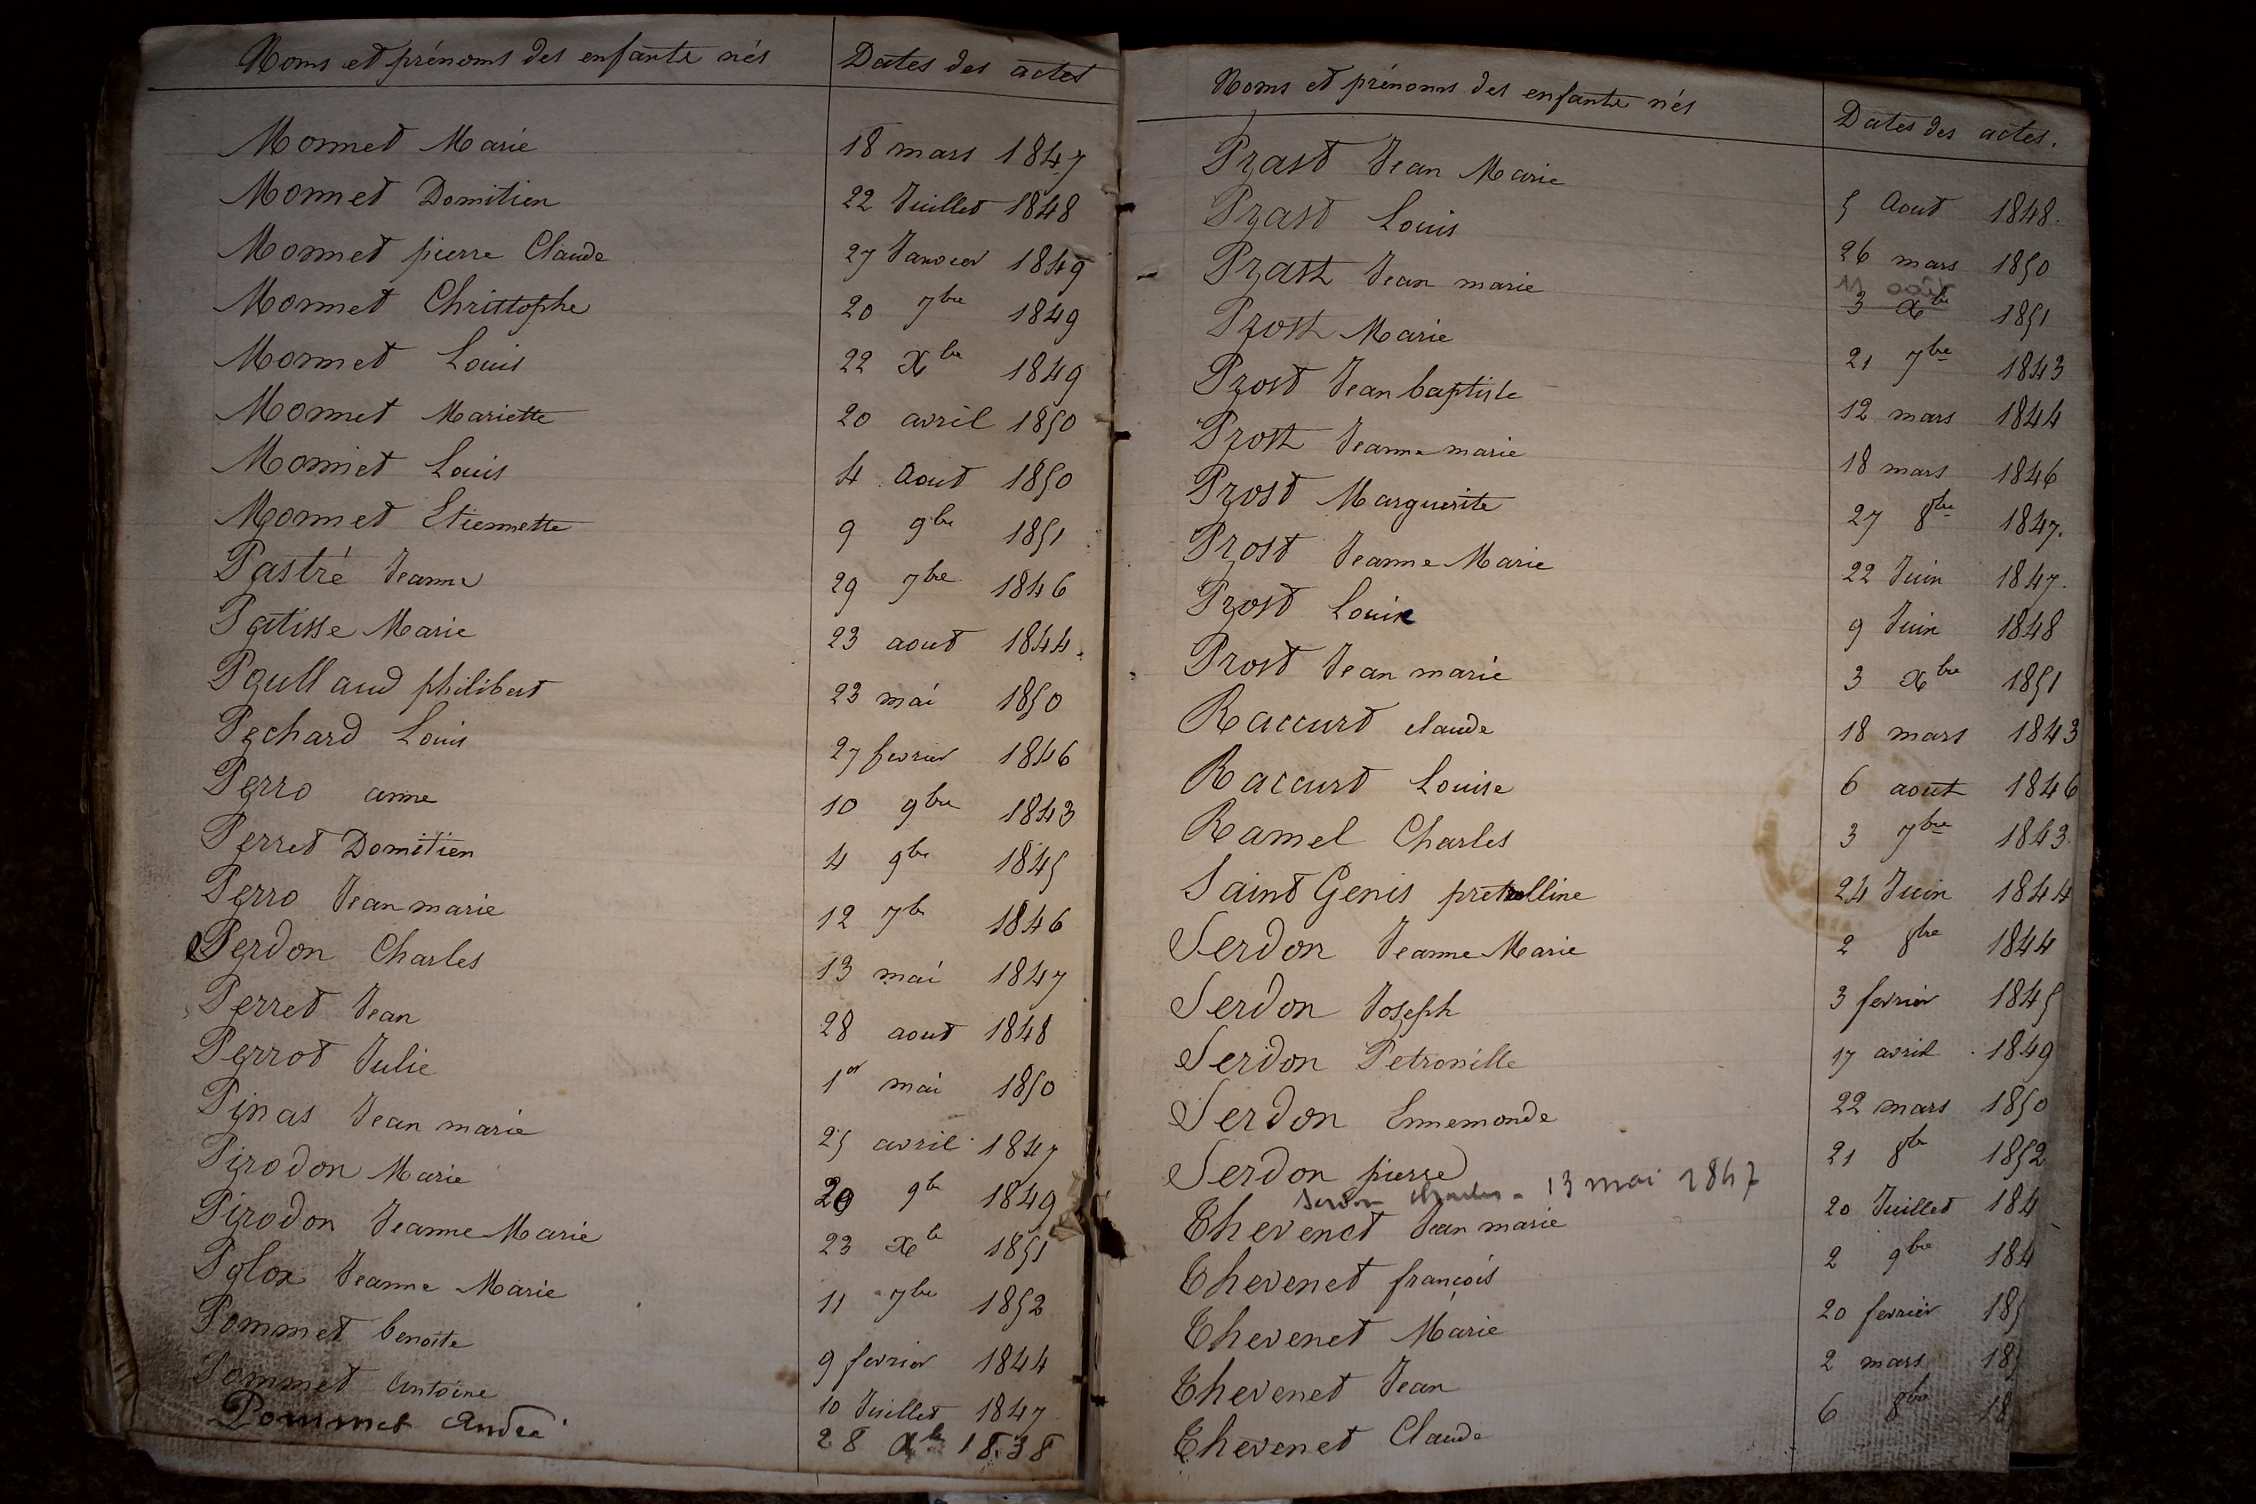 Noms et prénoms des enfants nés Dates des actes
Monnet Marie 18 mars 1847
Monnet Domitien 22 Juillet 1848
Monnet pierre Claude 27 Janvier 1849
Monnet Christophe 20 7bre 1849
Monnet Louis 22 Xbre 1849
Monnet Mariette 20 avril 1850
Monnet Louis 4 Aout 1850
Monnet Etiennette 9 9bre 1851
Pastré Jeanne 29 7bre 1846
Patisse Marie 23 aout 1844
Paulland philibert 23 mai 1850
Pechard Louis 27 fevrier 1846
Perro anne 10 9bre 1843
Perret Domitien 4 9bre 1845
Perro Jean marie 12 7b 1846
Perdon Charles 13 mai 1847
Perret Jean 28 aout 1848
Perrot Julie 1er mai 1850
Pinas Jean marie 25 avril 1847
Pirodon Marie 29 9b 1849
Pirodon Jeanne Marie 23 Xb 1851
Plox Jeanne Marie 11 7bre 1852
Pommet benoite 9 fevrier 1844
Pommet Antoine 10 Juillet 1847
Pommet André 28 Xb 1838
Noms et prénoms des enfants nés Dates des actes.
Prast Jean Marie 5 Aout 1848.
Prast Louis 26 mars 1850
Prast Jean marie 3 Xbre 1851
Prost Marie 21 7bre 1843
Prost Jean baptiste 12 mars 1844
Prost Jeanne marie 18 mars 1846
Prost Marguerite 27 8bre 1847.
Prost Jeanne Marie 22 Juin 1847.
Prost Louise 9 Juin 1848
Prost Jean marie 3 Xbre 1851
Raccurt claude 18 mars 1843
Raccurt Louise 6 aout 1846
Ramel Charles 3 7bre 1843
Saint Genis 24 Juin 1844
Serdon Jeanne Marie 2 8bre 1844
Serdon Joseph 3 fevrier 1845
Serdon Petronille 17 avril 1849
Serdon Ennemonde 22 mars 1850
Serdon pierre 21 8b 1852
Serdon Charles - 13 mai 1847
Thevenet Jean marie 20 Juillet 184
Thevenet françois 2 9bre 184
Thevenet Marie 20 fevrier 185
Thevenet Jean 2 mars 185
Thevenet Claude 6 8bre 18